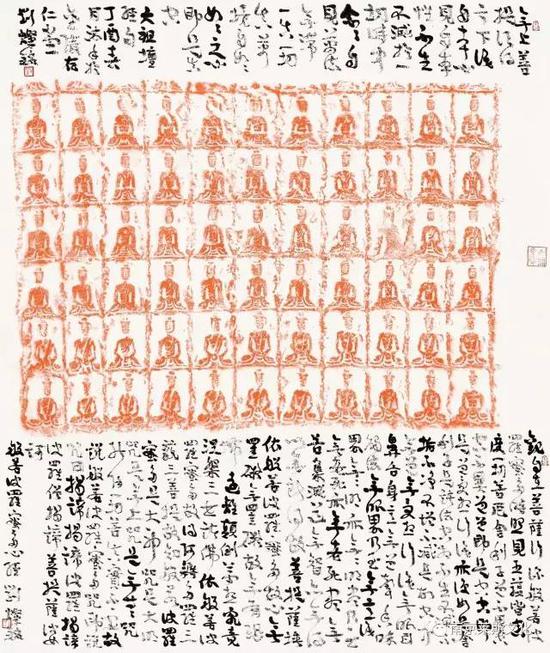 無上菩
提須得
言下識
自本心
見自本
性不生
不滅於一
切時中
念念自
見萬法
無滯
一真一切
真萬
境自如
如如之心
即是真
實
六祖壇
經句
丁酉春
劉燦銘
觀自在菩薩行深般若波
羅蜜多時照見五蘊皆空
度一切苦厄舍利子色不異
空空不異色色即是空空
即是色受想行識亦復如是舍
利子是諸法空相不生不滅不
垢不淨不增不減是故空中
無色無受想行識無眼耳
鼻舌身意無色聲香味
觸法無眼界乃至無意識
界無無明亦無無明盡乃至
無老死亦無老死盡無
苦集滅道無智亦無得以
無所得故菩提薩埵
依般若波羅蜜多故心無
罣礙無罣礙故無有恐
怖遠離顛倒夢想究竟
涅槃三世諸佛依般若波
羅蜜多故得阿耨多羅
藐三菩提故知般若波羅
蜜多是大神咒是大明
咒是無上咒是無等等咒
能除一切苦真實不虛故
說般若波羅蜜多咒即說
咒曰揭諦揭諦波羅揭諦
波羅僧揭諦菩提薩婆
訶
般若波羅蜜多心經 劉燦銘